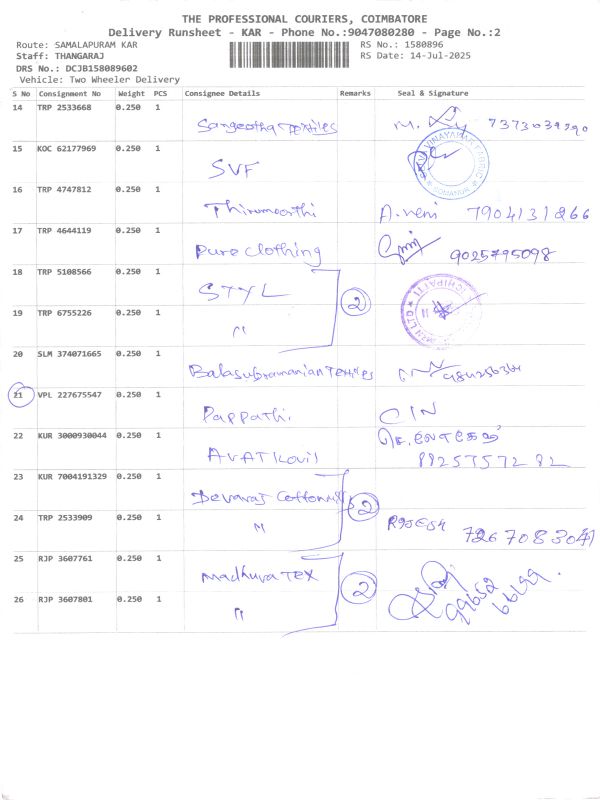 THE PROFESSIONAL COURIERS, COIMBATORE
Delivery Runsheet - KAR - Phone No.:9047080280 - Page No.:2
Route: SAMALAPURAM KAR
RS No.: 1580896
Staff: THANGARAJ
RS Date: 14-Jul-2025
DRS No.: DCJB158089602
Vehicle: Two Wheeler Delivery
S No Consignment No Weight PCS Consignee Details Remarks Seal & Signature
14 TRP 2533668 0.250 1
Sangeetha Textiles
15 KOC 62177969 0.250 1
SVF
16 TRP 4747812 0.250 1
Thirumoorthi A.veni 7904131266
17 TRP 4644119 0.250 1
Pure Clothing 9025795098
18 TRP 5108566 0.250 1
STYL 2
19 TRP 6755226 0.250 1
"
20 SLM 374071665 0.250 1
Balasubramanian Textiles
21 VPL 227675547 0.250 1
Pappathi CIN
22 KUR 3000930044 0.250 1
8825757282
23 KUR 7004191329 0.250 1
Devaraj Cotton Mills 2
24 TRP 2533909 0.250 1
" 7267083047
25 RJP 3607761 0.250 1
Madhura TEX 2
26 RJP 3607801 0.250 1
"
99652
66499